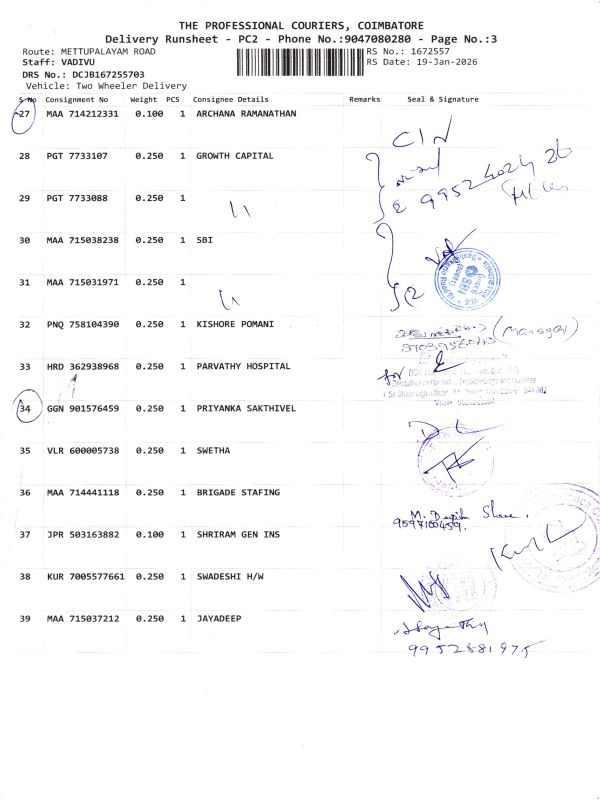 THE PROFESSIONAL COURIERS, COIMBATORE
Delivery Runsheet - PC2 - Phone No.:9047080280 - Page No.:3
Route: METTUPALAYAM ROAD RS No.: 1672557
Staff: VADIVU RS Date: 19-Jan-2026
DRS No.: DCJB167255703
Vehicle: Two Wheeler Delivery
S No Consignment No Weight PCS Consignee Details Remarks Seal & Signature
27 MAA 714212331 0.100 1 ARCHANA RAMANATHAN
CIN
28 PGT 7733107 0.250 1 GROWTH CAPITAL
29 PGT 7733088 0.250 1
30 MAA 715038238 0.250 1 SBI
31 MAA 715031971 0.250 1
32 PNQ 758104390 0.250 1 KISHORE POMANI
(Manager)
33 HRD 362938968 0.250 1 PARVATHY HOSPITAL
for
34 GGN 901576459 0.250 1 PRIYANKA SAKTHIVEL
DL
35 VLR 600005738 0.250 1 SWETHA
36 MAA 714441118 0.250 1 BRIGADE STAFING
9597100459.
37 JPR 503163882 0.100 1 SHRIRAM GEN INS
38 KUR 7005577661 0.250 1 SWADESHI H/W
39 MAA 715037212 0.250 1 JAYADEEP
9952881975